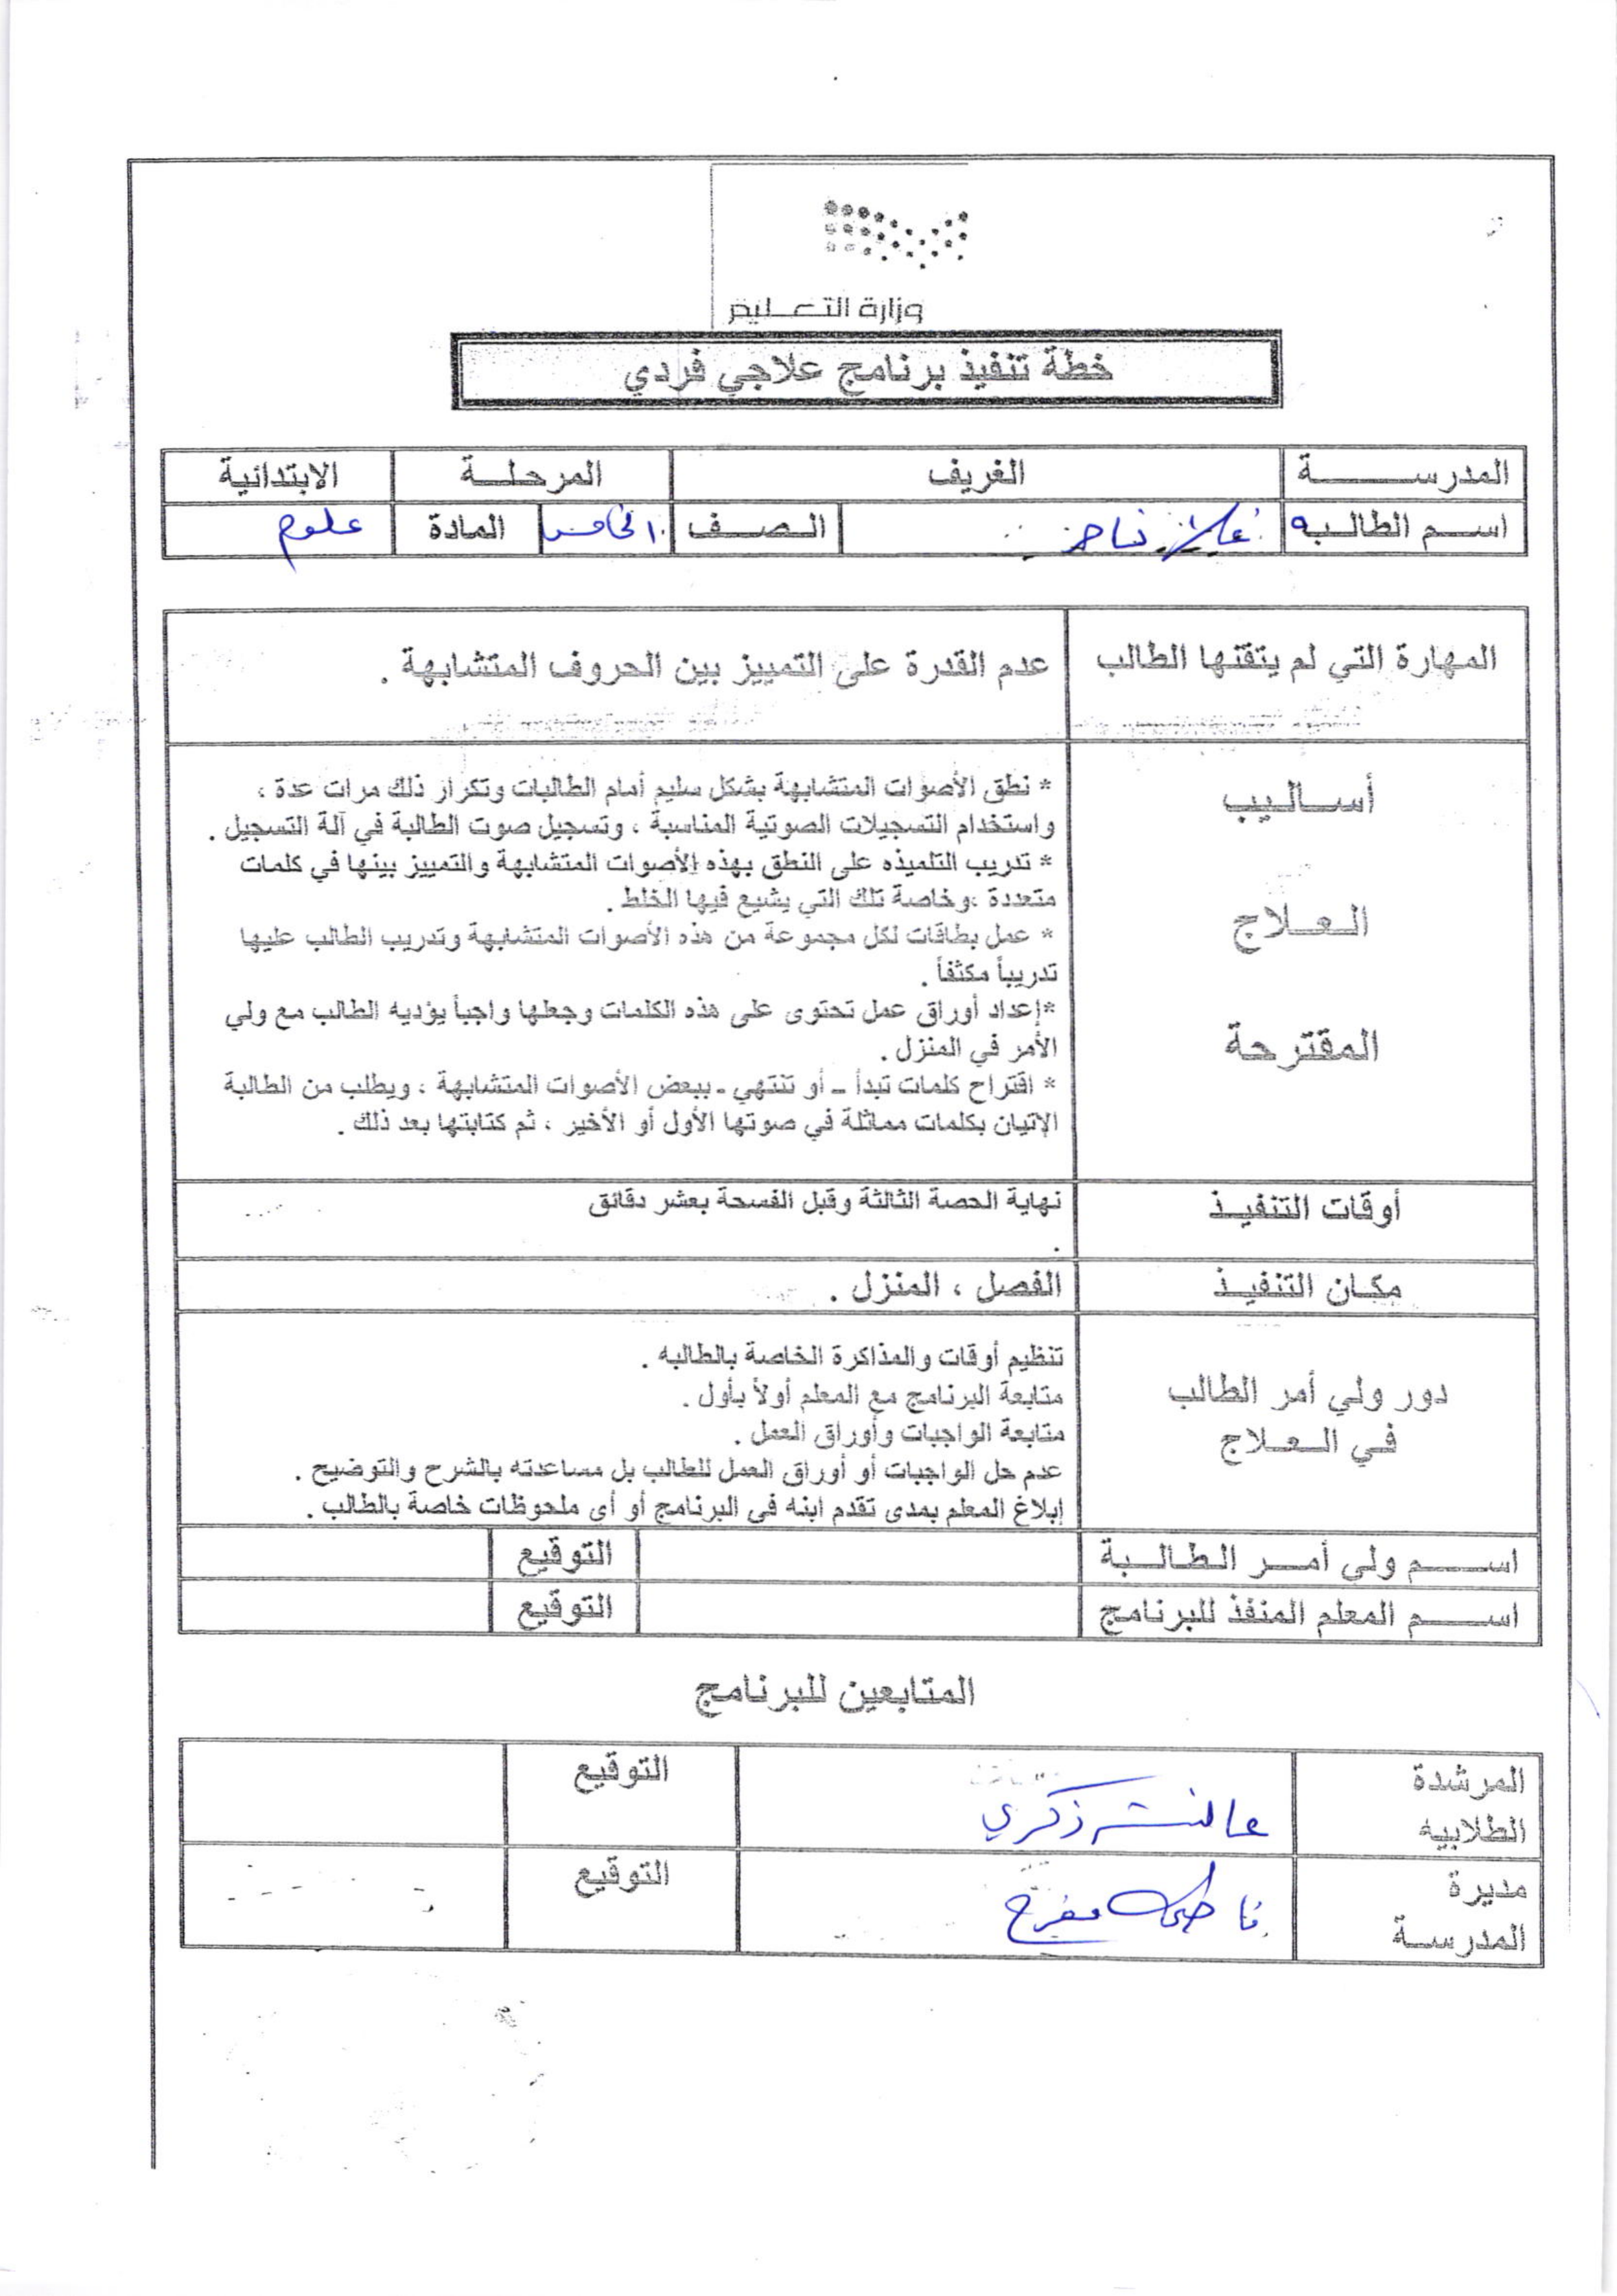 وزارة التعليم
خطة تنفيذ برنامج علاجي فردي
المدرسة الغريف المرحلة الابتدائية
اسم الطالبه الصف الخامس المادة علوم
المهارة التي لم يتقنها الطالب عدم القدرة على التمييز بين الحروف المتشابهة .
أساليب
العلاج
المقترحة
* نطق الأصوات المتشابهة بشكل سليم أمام الطالبات وتكرار ذلك مرات عدة ،
واستخدام التسجيلات الصوتية المناسبة ، وتسجيل صوت الطالبة في آلة التسجيل .
* تدريب التلميذه على النطق بهذه الأصوات المتشابهة والتمييز بينها في كلمات
متعددة ،وخاصة تلك التي يشيع فيها الخلط .
* عمل بطاقات لكل مجموعة من هذه الأصوات المتشابهة وتدريب الطالب عليها
تدريباً مكثفاً .
*إعداد أوراق عمل تحتوى على هذه الكلمات وجعلها واجباً يؤديه الطالب مع ولي
الأمر في المنزل .
* اقتراح كلمات تبدأ - أو تنتهي - ببعض الأصوات المتشابهة ، ويطلب من الطالبة
الإتيان بكلمات مماثلة في صوتها الأول أو الأخير ، ثم كتابتها بعد ذلك .
أوقات التنفيذ نهاية الحصة الثالثة وقبل الفسحة بعشر دقائق
.
مكان التنفيذ الفصل ، المنزل .
دور ولي أمر الطالب
في العلاج
تنظيم أوقات والمذاكرة الخاصة بالطالبه .
متابعة البرنامج مع المعلم أولاً بأول .
متابعة الواجبات وأوراق العمل .
عدم حل الواجبات أو أوراق العمل للطالب بل مساعدته بالشرح والتوضيح .
إبلاغ المعلم بمدى تقدم ابنه في البرنامج أو أى ملحوظات خاصة بالطالب .
اسم ولى أمر الطالبة التوقيع
اسم المعلم المنفذ للبرنامج التوقيع
المتابعين للبرنامج
المرشدة
الطلابيه
ذكري
التوقيع
مديرة
المدرسة
فاطمة مفرح
التوقيع